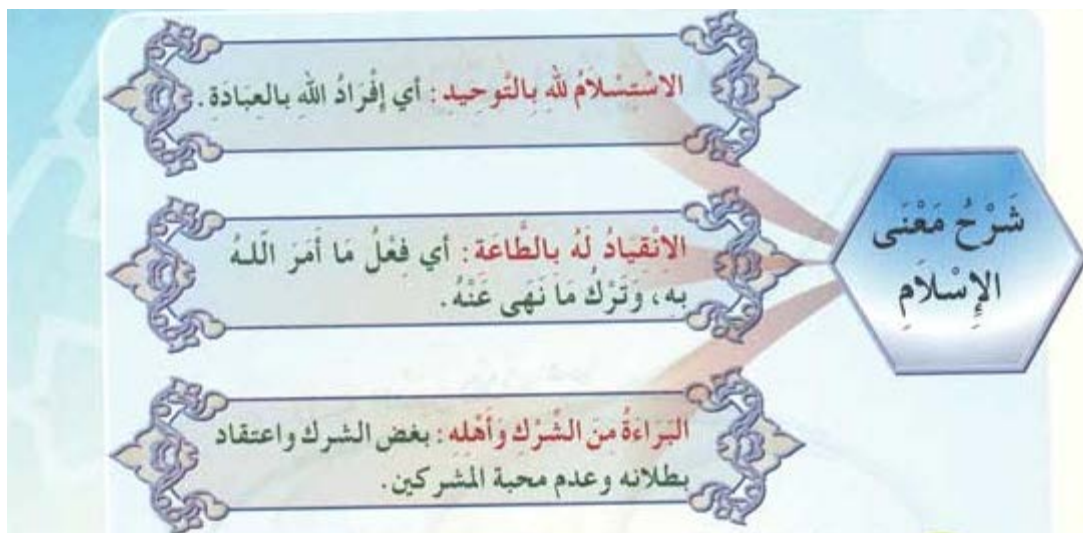 شَرْحُ مَعْنَى
الإِسْلَامِ
الاسْتِسْلَامُ للهِ بِالتَّوحِيدِ : أي إِفْرَادُ اللهِ بِالعِبَادَةِ .
الانْقِيَادُ لَهُ بِالطَّاعَة : أي فِعْلُ مَا أَمَرَ اللهُ
بِه ، وَتَرْكُ مَا نَهَى عَنْهُ .
البَرَاءَةُ مِنَ الشِّرْكِ وَأَهْلِهِ : بغض الشرك واعتقاد
بطلانه وعدم محبة المشركين .